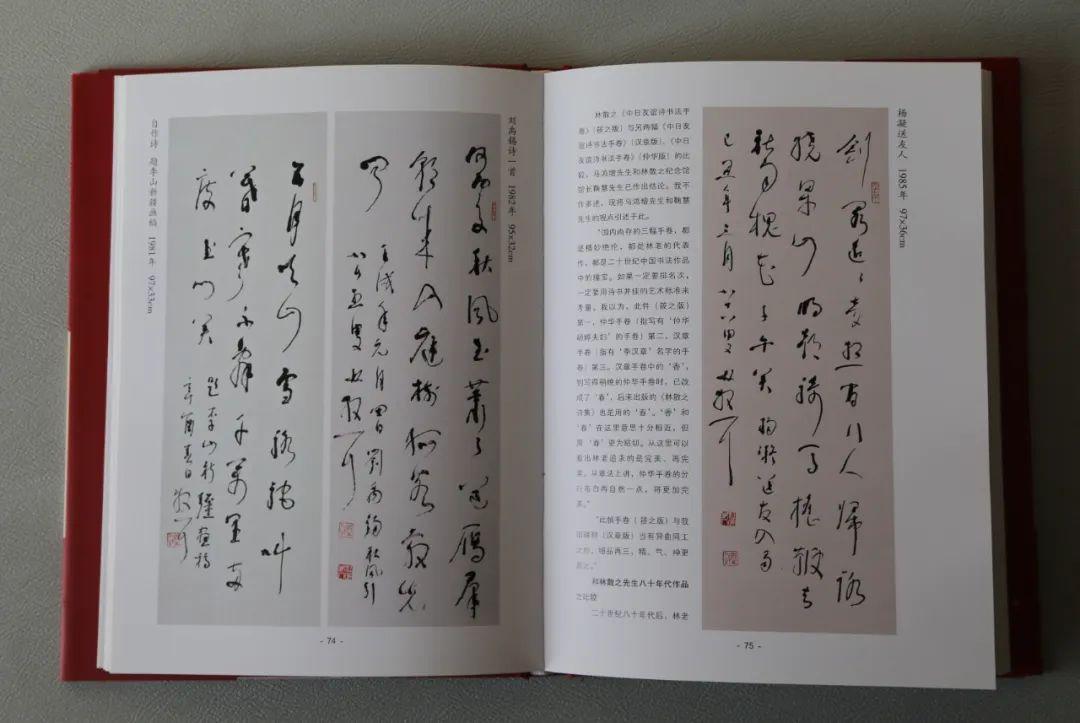 自作诗 题李山新疆画稿 1981年 97×33cm
六月天山雪骆驼叫
暮寒不辞千万里来
度玉门关
题李山新疆画稿
辛酉春日散耳
刘禹锡诗一首 1982年 95×32cm
何处秋风至萧萧送雁群
朝来入庭树孤客最先
闻
壬戌年元月四日刘禹锡秋风引
八十五叟林散耳
- 74 -
林散之《中日友谊诗书法手
卷》(筱之版)与另两幅《中日友
谊诗书法手卷》(汉章版)、《中日
友谊诗书法手卷》(仲华版)的比
较，马鸿增先生和林散之纪念馆
馆长鞠慧先生已作出结论，我不
作多述，现将马鸿增先生和鞠慧
先生的观点引述于此。
“国内尚存的三幅手卷，都
是精妙绝伦，都是林老的代表
作，都是二十世纪中国书法作品
中的瑰宝。如果一定要排名次，
一定要用诗书并佳的艺术标准来
考量，我以为，此件(筱之版)
第一，仲华手卷(指写有‘仲华
夫妇’的手卷)第二，汉章
手卷(指有‘季汉章’名字的手
卷)第三。汉章手卷中的‘香’，
到写得稍晚的仲华手卷时，已改
成了‘春’，后来出版的《林散之
诗集》也是用的‘春’。‘香’和
‘春’在这里意思十分相近，但
用‘春’更为贴切。从这里可以
看出林老追求的是完美、再完
美。从章法上讲，仲华手卷的分
行布白再自然一点，将更加完
美。”
“此帧手卷(筱之版)与敦
(汉章版)当有异曲同工
之妙，细品再三，精、气、神更
和林散之先生八十年代作品
之比较
二十世纪八十年代后，林老
杨凝送友人 1985年 97×36cm
剑阁迢迢梦想间行人归路
绕梁山明朝骑马摇鞭去
秋雨槐花子午关杨凝送友入蜀
乙丑年三月八十八叟林散耳
- 75 -